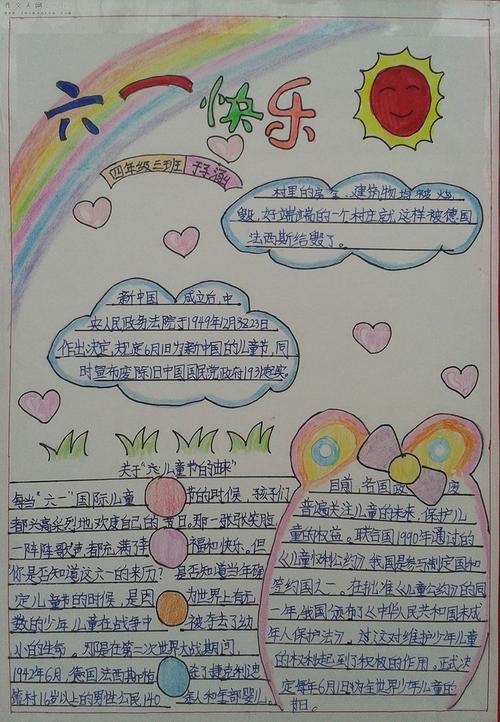 作文人网
六一快乐
四年级三班
村里的房舍、建筑物均被烧
毁,好端端的一个村庄就这样被德国
法西斯给毁了。
新中国 成立后,中
央人民政务法院于1949年12月23日
作出决定,规定6月1日为新中国的儿童节,同
时宣布废除旧中国国民党政府1931
关于"六一儿童节的由来"
每当"六一"国际儿童 节的时候,孩子们
都兴高采烈地,欢度自己的节日。那一张张笑脸,
一阵阵歌声,都充满了幸 福和快乐。但
你是否知道这六一的来历? 是否知道当年确
定儿童节的时候,是因 为世界上有无
数的少年儿童在战争中 被夺去了幼
小的生命。 那是在第二次世界大战期间,
1942年6月,德国法西斯 在了捷克利迪
策村16岁以上的男性公民140 人和全部婴儿。
目前,各国政 废
普遍关注儿童的未来,保护儿
童的权益。联合国1990年通过的
《儿童权利公约》我国是参与制定国和
签约国之一。在批准《儿童公约》的同
一年,我国颁布了《中华人民共和国未成
年人保护法》,过这对维护少年儿童
的权利起到了积极的作用。正式决
定每年6月1日为全世界少年儿童的
节日。